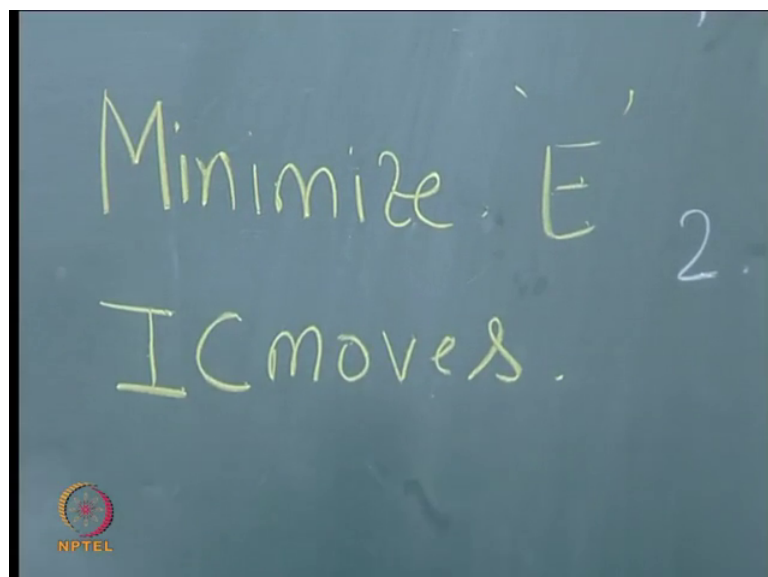 Minimize. 'E'
2.
ICmoves.
NPTEL